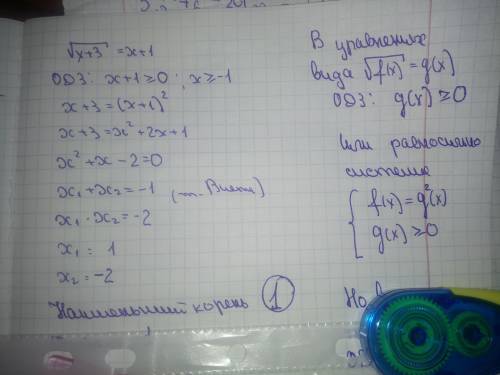 √x+3 = x+1
ОДЗ: x+1≥0; x≥-1
x+3=(x+1)²
x+3=x²+2x+1
x²+x-2=0
x₁+x₂=-1 (т. Виета)
x₁·x₂=-2
x₁ = 1
x₂=-2
Наименьший корень 1
В уравнениях
вида √f(x) = g(x)
ОДЗ: g(x)≥0
Или равносильно
системе
{ f(x)=g²(x)
g(x)≥0
Но